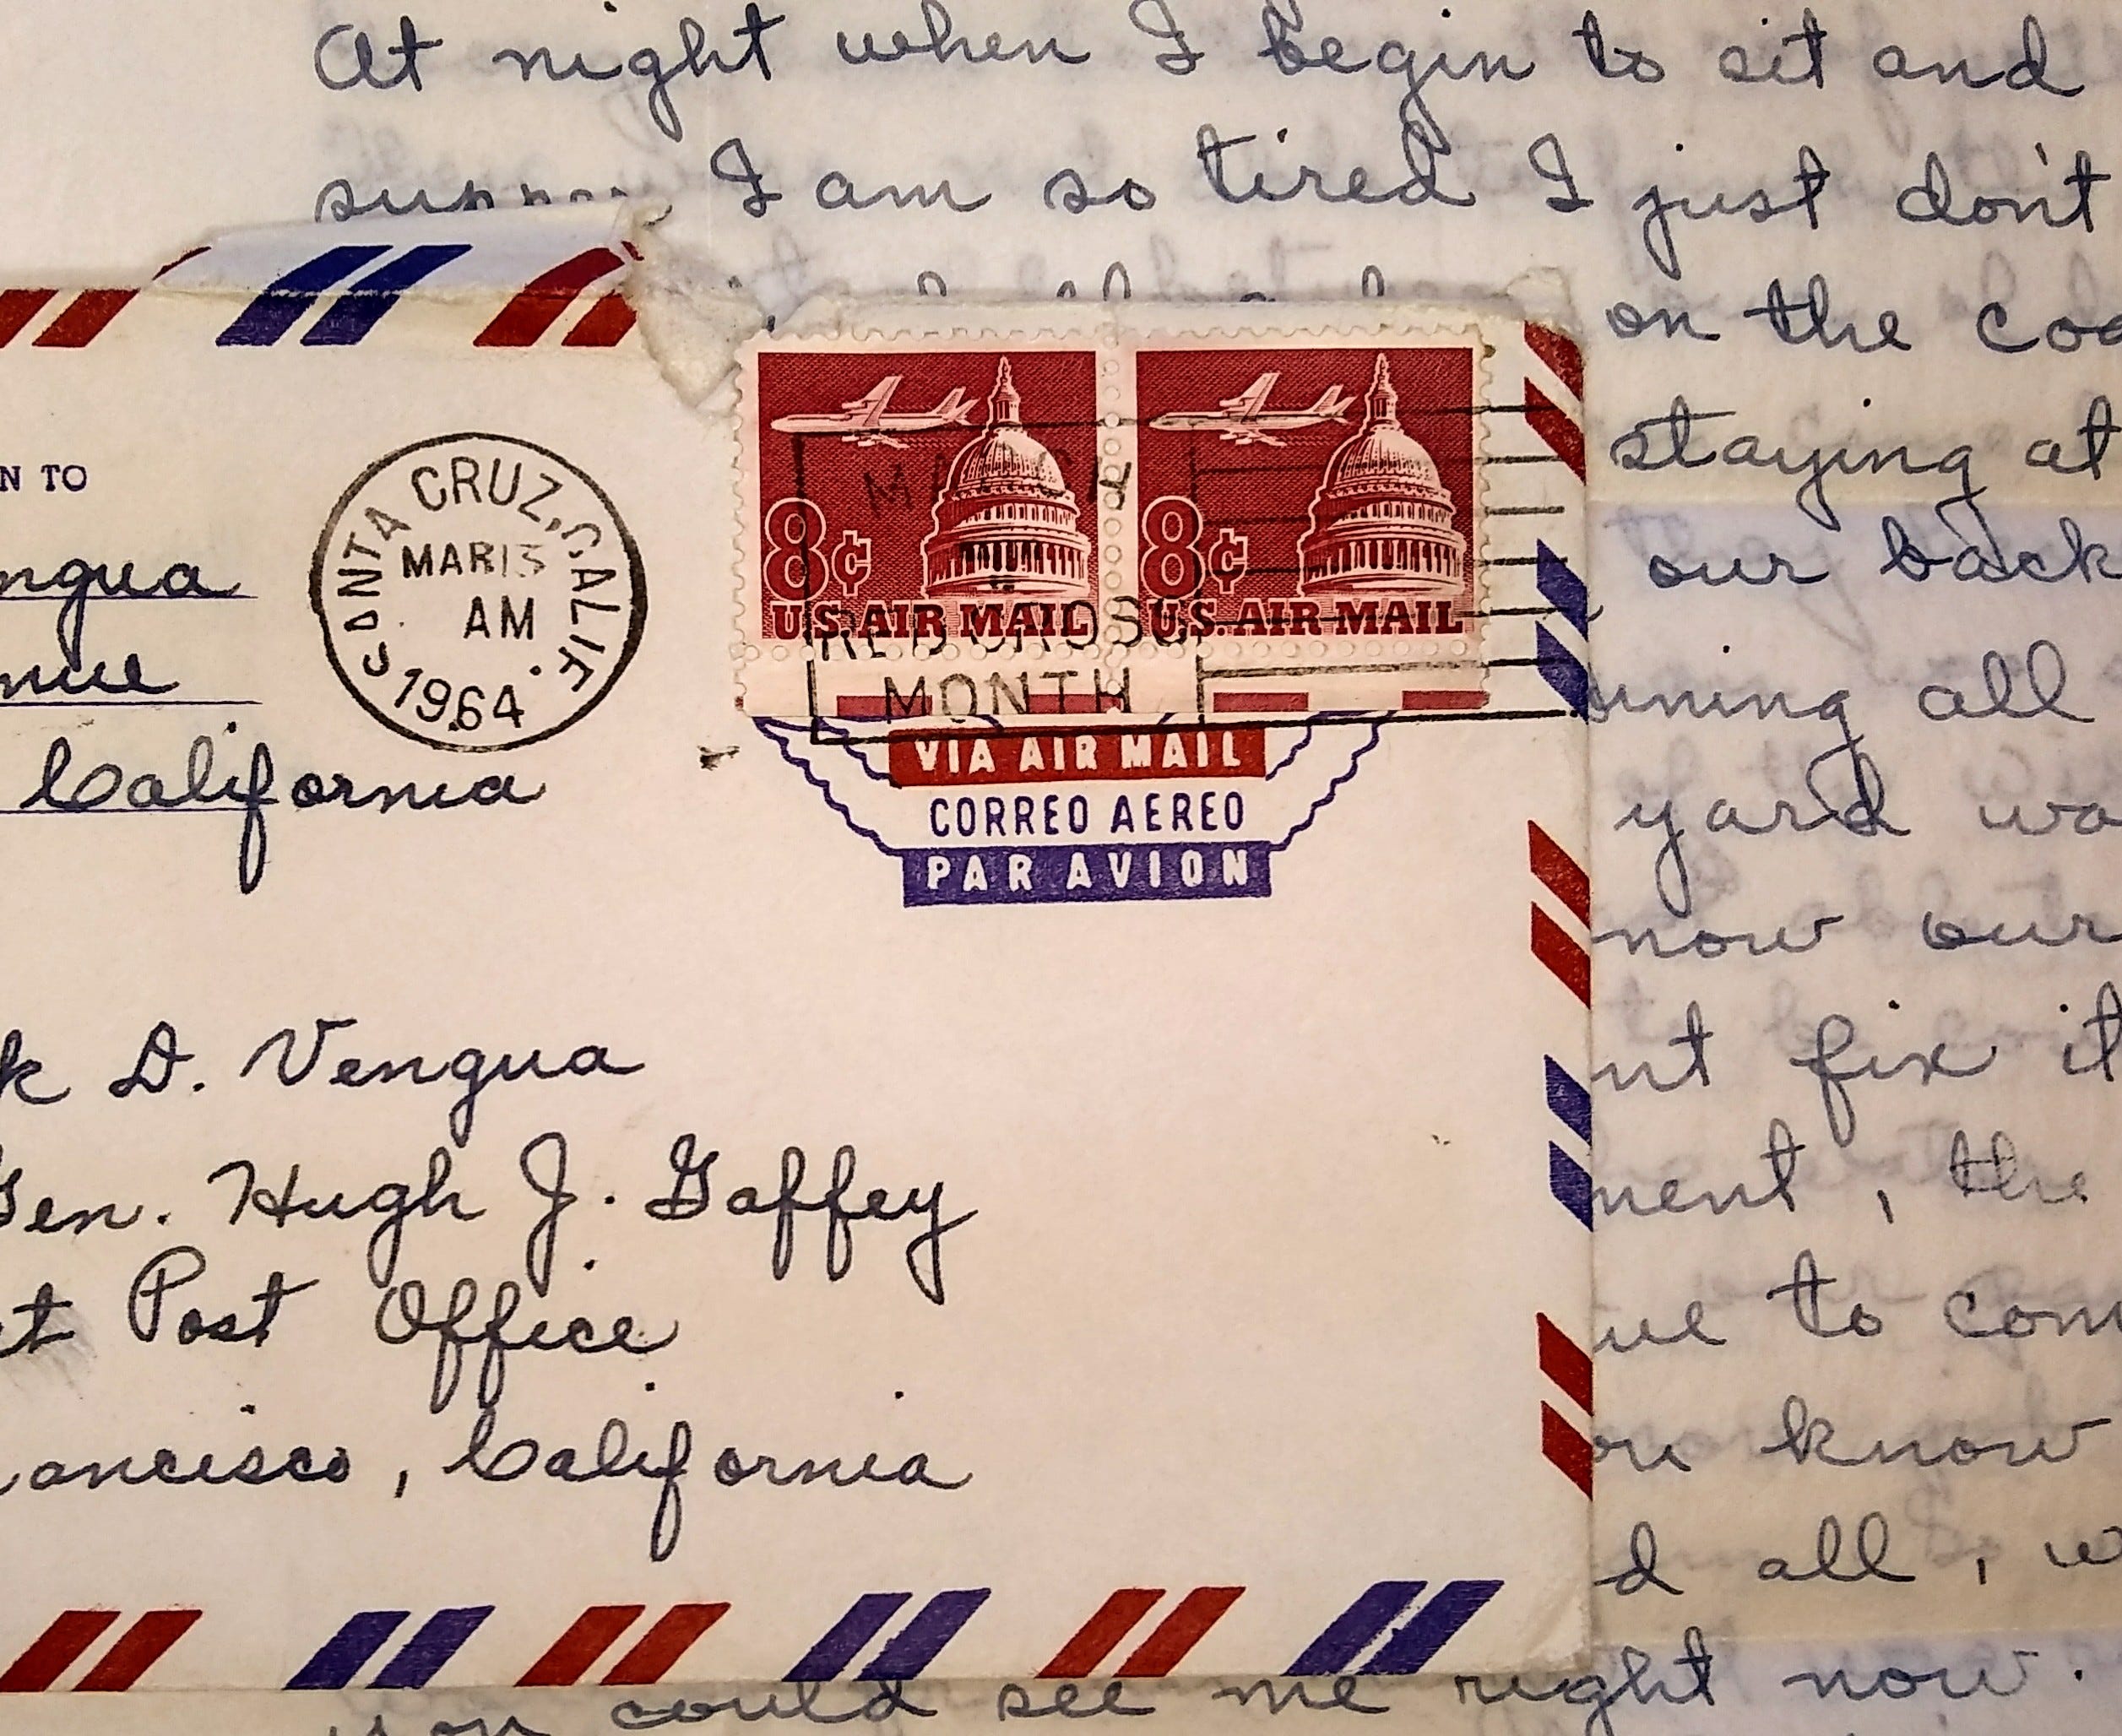 At night when I begin to sit and
I am so tired I just don't
on the
staying at
our back
all
yard
now our
fix it
, the
to
know
all,
could see me right now.
N TO
ngua
nue
California
SANTA CRUZ, CALIF.
MAR 13
AM
1964
MARCH
RED CROSS
MONTH
8¢
U.S. AIR MAIL
8¢
U.S. AIR MAIL
VIA AIR MAIL
CORREO AEREO
PAR AVION
k D. Vengua
Gen. Hugh J. Gaffey
t Post Office
ancisco, California